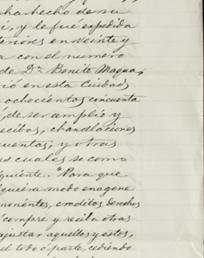 ha hecho de su
i, y le fué expedida
teriores en veinte y
a con el numero
de Dn. Benito Magua,
ió en esta Ciudad
ochocientos cincuenta
de ser amplio y
recibos, chancelaciones
cuentas, y otras
as cuales se como
iguiente. "Para que
quiera modo enagene
creditos, derechos
compre y reciba otras
ajustar aquellos y estos,
el todo ó parte, cediendo